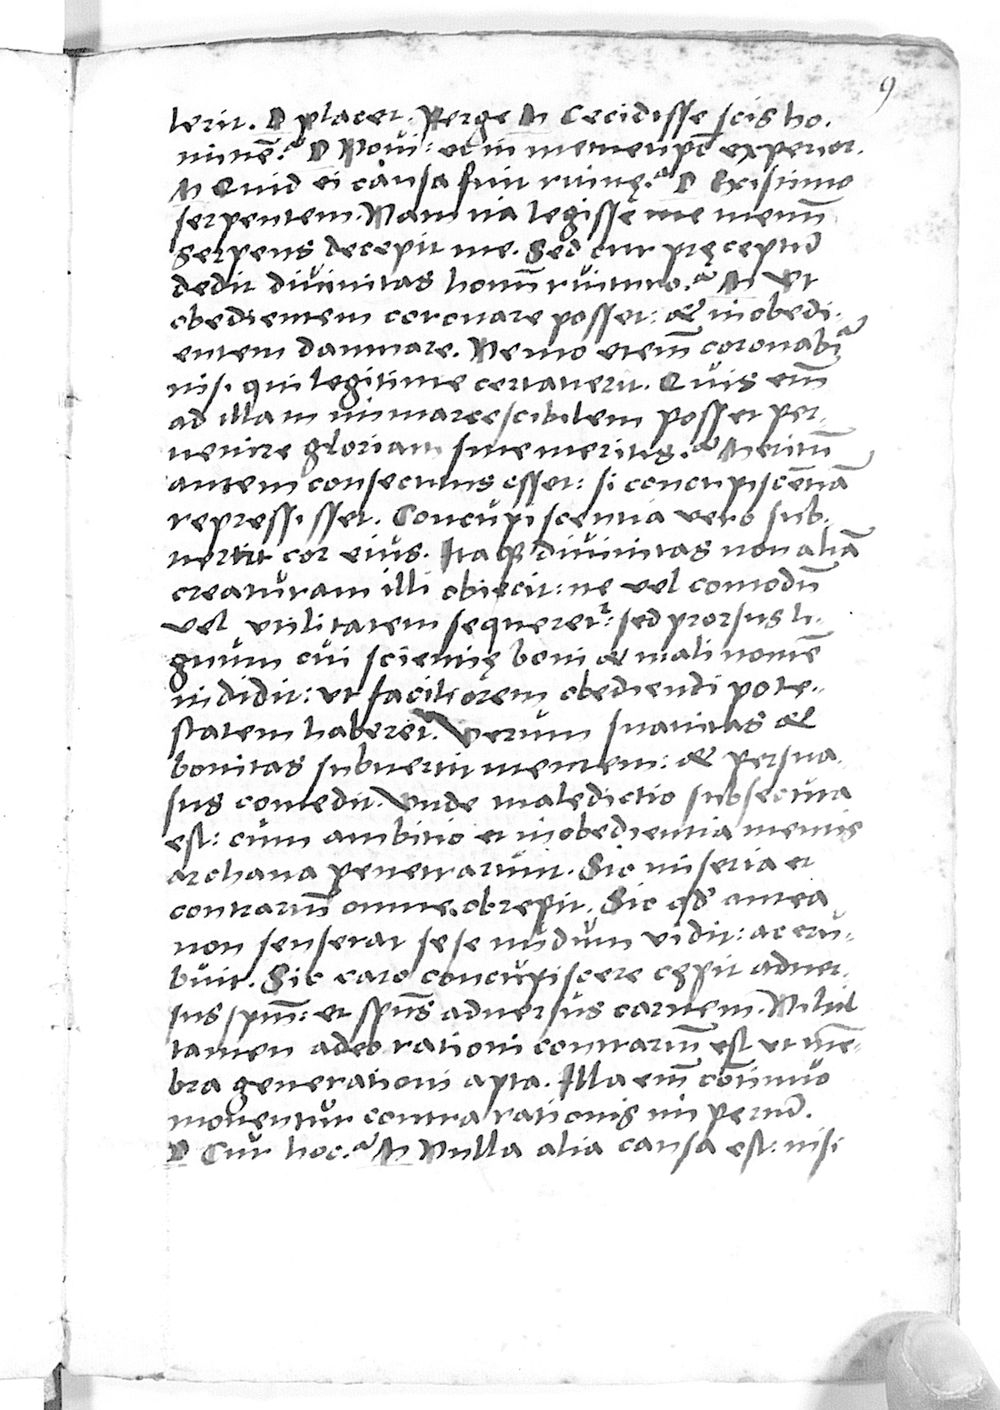 9
lerit. D placet. Perge M Cecidisse scis ho.
minē.? D Noui: et in memetipō experior.
M Quid ei causa fuit ruinę.? D Existimo
serpentem. Nam ita legisse me memī
serpens decepit me. Sed cur pręceptū
dedit diuinitas homī ruituro.? M Vt
obedientem coronare posset: & inobedi-
entem damnare. Nemo etem̄ coronabiť
nisi qui legitime certauerit. Quis em̄
ad illam immarcescibilem posset per-
uenire gloriam sine meritis.? Meritū
autem consecutus esset: si concupiscētiā
repressisset. Concupiscentia vero sub-
uertit cor eius. Itaq̄ diuinitas non aliā
creaturam illi obiecit: ne vel comodū
vel vtilitatem sequereť: sed prorsus li-
gnum cui scientię boni & mali nomē
indidit: vt faciliorem obediendi pote-
statem haberet. Verum suauitas &
bonitas subuertit mentem: & persua-
sus comedit. Vnde maledictio subsecuta
est: cum ambitio et inobedientia mentis
archana penetrarunt. Sic miseria et
contrariū omne obrepit. Sic qđ antea
non senserat sese nudum vidit: ac eru-
buit. Sic caro concupiscere cępit aduer-
sus spm̄: et spūs aduersus carnem. Nihil
tamen adeo rationi contrariū est vt mē-
bra generationi apta. Illa em̄ cōtinuo
mouentur contra rationis imperiū.
D Cur hoc.? M Nulla alia causa est: nisi